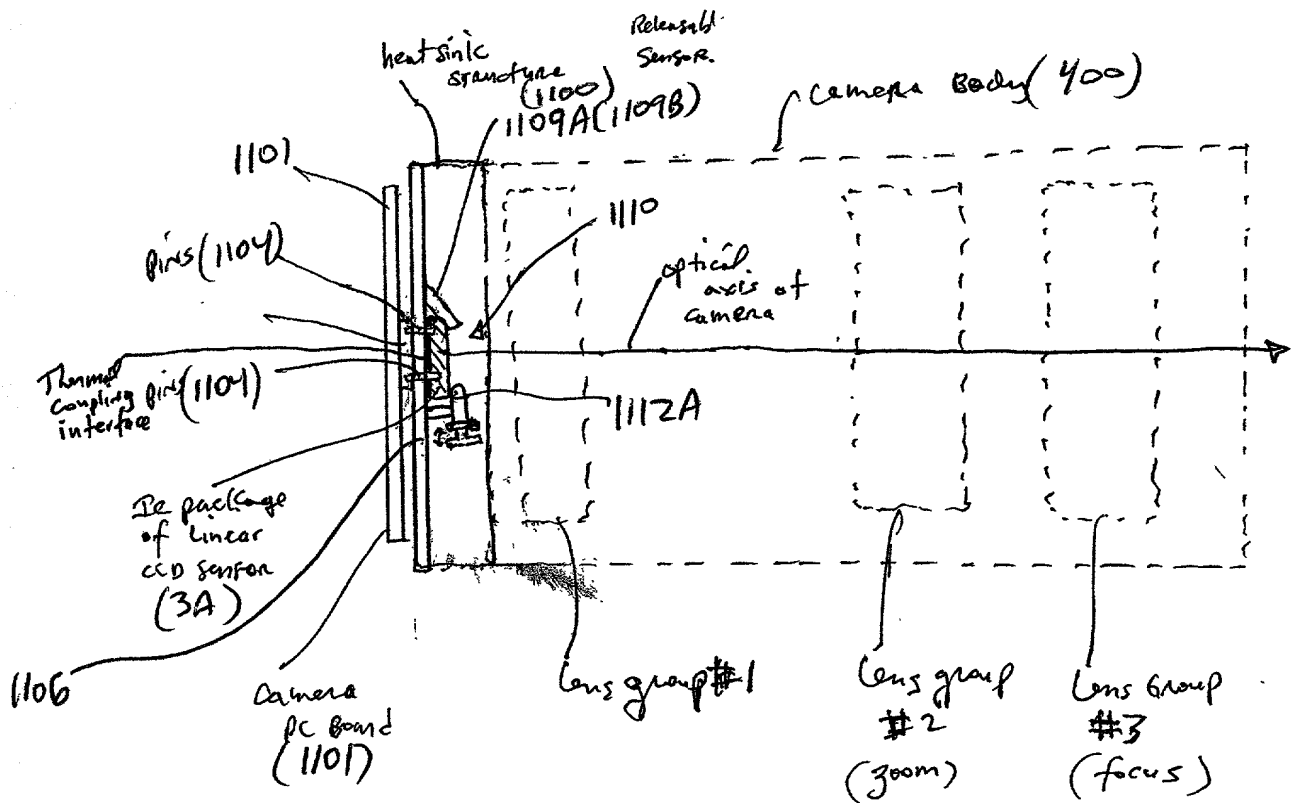 heatsink
structure
(1100)
Releasabl.
Sensor.
1109A(1109B)
Camera Body(400)
1101
Pins(1104)
1110
optical
axis of
camera
Thermal
Coupling
interface
pins(1104)
1112A
Ic package
of Linear
CCD Sensor
(3A)
1106
Camera
PC Board
(1101)
Lens group #1
Lens group
#2
(zoom)
Lens Group
#3
(focus)